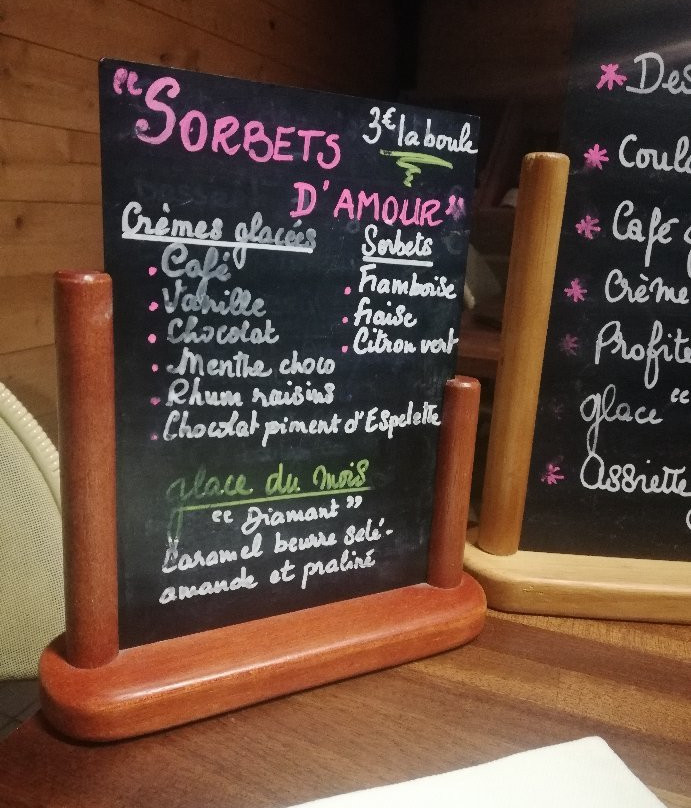 "SORBETS
3€ la boule
D'AMOUR"
Crèmes glacées
• Café
• Vanille
• Chocolat
• Menthe choco
• Rhum raisins
• Chocolat piment d'Espelette
Sorbets
• Framboise
• Fraise
• Citron vert
glace du Mois
"Diamant"
Caramel beurre salé-
amande et praliné
* Des
* Coul
* Café
* Crème
* Profite
glace "
* Assiette